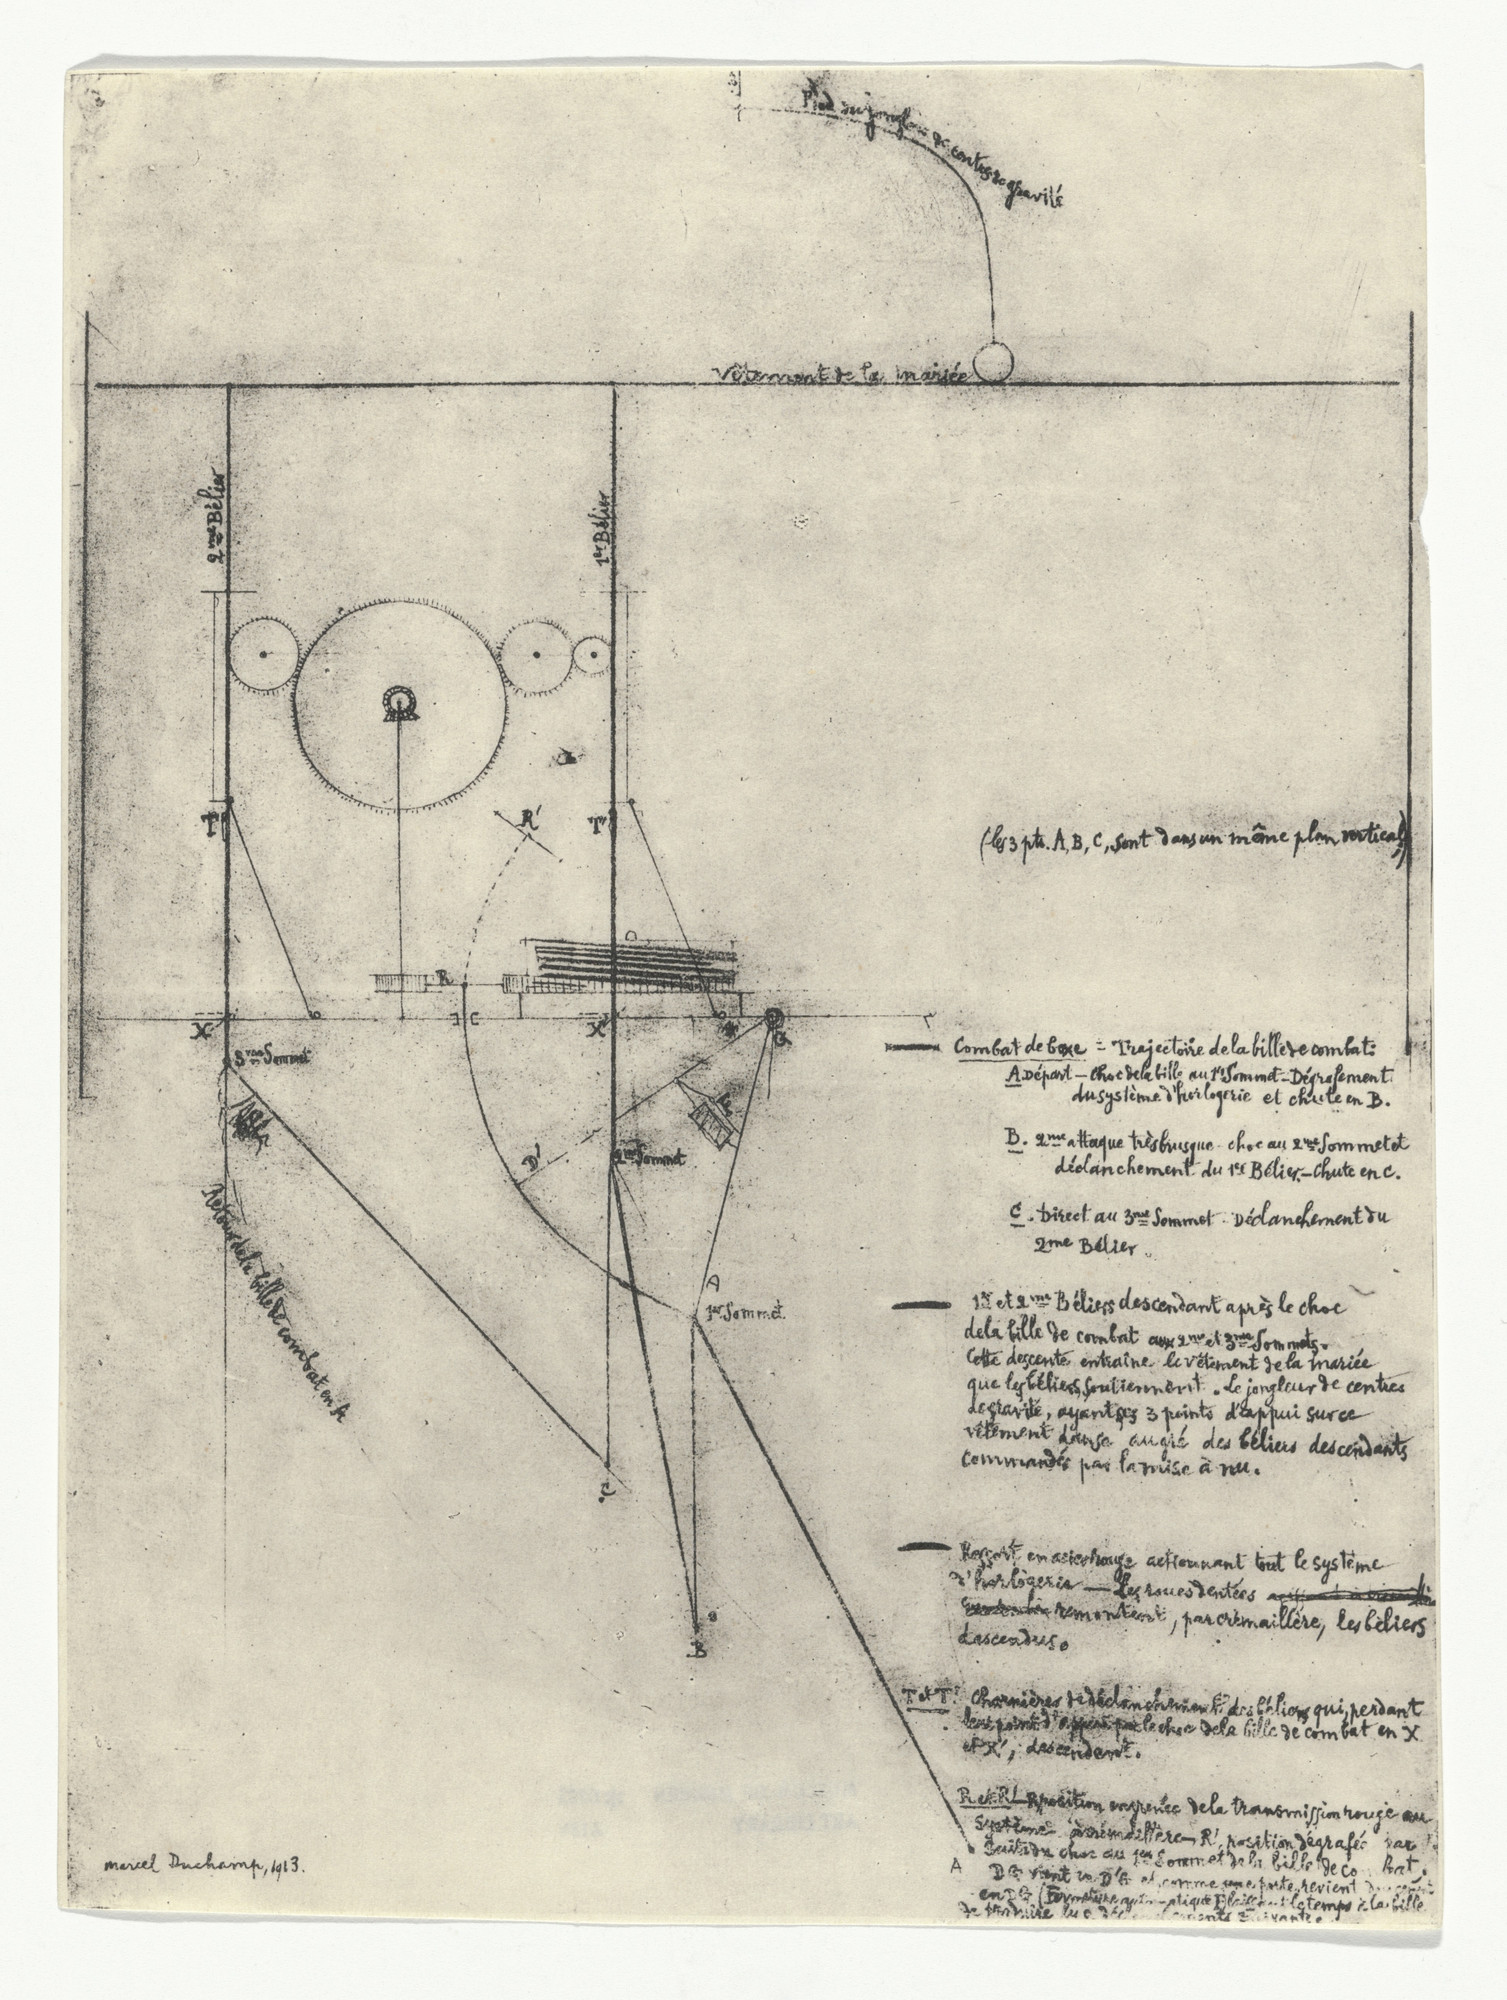 Pied du jongleur de centres de gravité
Vêtement de la mariée
2me Bélier
1er Bélier
T
T'
R'
(les 3 pts. A, B, C, sont dans un même plan vertical)
R
X
X'
C
G
3me Sommet
2me Sommet
D'
A
1er Sommet
Retour de la bille de combat en A
C
B
Combat de boxe = Trajectoire de la bille de combat:
A Départ - choc de la bille au 1er Sommet - Dégrafement
du système d'horlogerie et chute en B.
B. 2me attaque très brusque. choc au 2me Sommet et
déclanchement du 1er Bélier. - Chute en C.
C. Direct au 3me Sommet. Déclanchement du
2me Bélier.
1er et 2me Béliers descendant après le choc
de la bille de combat aux 2me et 3me Sommets.
Cette descente entraîne le vêtement de la mariée
que les béliers soutiennent. Le jongleur de centres
de gravité, ayant ses 3 points d'appui sur ce
vêtement danse au gré des béliers descendants
commandés par la mise à nu.
Ressort en acier rouge actionnant tout le système
d'horlogerie — Les roues dentées
remontent, par crémaillère, les béliers
descendus.
T et T' Charnières de déclanchement des béliers qui, perdant
leur point d'appui par le choc de la bille de combat en X
et X', descendent.
R et R' R position engrenée de la transmission rouge au
système à crémaillère — R', position dégrafée par
suite du choc au 1er Sommet de la bille de combat.
A
DG vient en D'G et, comme une porte, revient
en DG (Fermeture automatique F) laissant le temps à la bille
de produire les
marcel Duchamp, 1913.